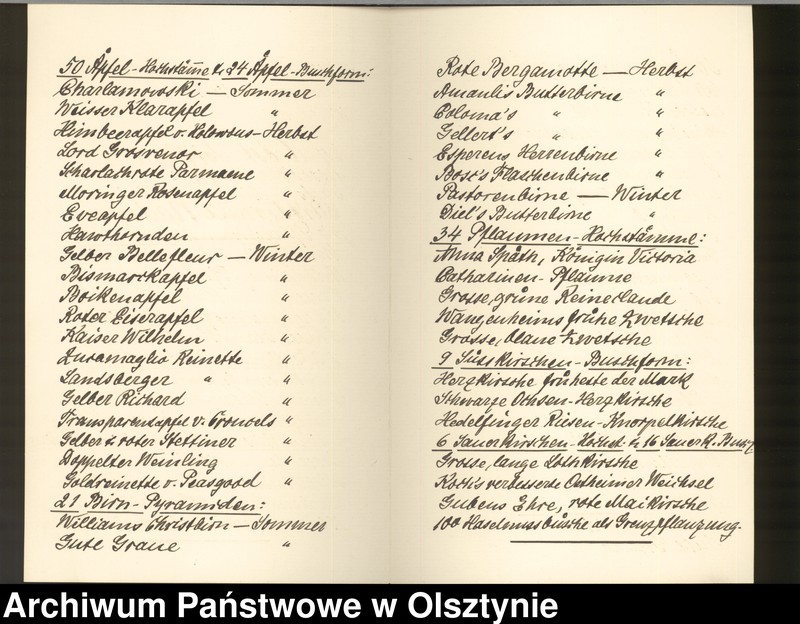 50 Äpfel-Hochstämme & 24 Äpfel-Buschform:
Charlamowski — Sommer
Weisser Klarapfel "
Himbeerapfel v. Holowous - Herbst
Lord Grosvenor "
Scharlachrote Parmaene "
Moringer Rosenapfel "
Eveapfel "
Hawthornden "
Gelber Bellefleur — Winter
Bismarckapfel "
Boikenapfel "
Roter Eiserapfel "
Kaiser Wilhelm "
Zuccamaglio Reinette "
Landsberger " "
Gelber Richard "
Transparentapfel v. Croncels "
Gelber & roter Stettiner "
Doppelter Weinling "
Goldreinette v. Peasgood "
21 Birn-Pyramiden:
Williams Christbirn — Sommer
Gute Graue "
Rote Bergamotte — Herbst
Amanlis Butterbirne "
Coloma's " "
Gellert's " "
Esperens Herrenbirne "
Bosc's Flaschenbirne "
Pastorenbirne — Winter
Diel's Butterbirne "
34 Pflaumen-Hochstämme:
Anna Späth, Königin Victoria
Catharinen-Pflaume
Grosse, grüne Reineclaude
Wangenheims frühe Zwetsche
Grosse, blaue Zwetsche
9 Süsskirschen-Buschform:
Herzkirsche früheste der Mark
Schwarze Ochsen-Herzkirsche
Hedelfinger Riesen-Knorpelkirsche
6 Sauerkirschen-Hochst. & 16 Sauerk. Busch
Grosse, lange Lothkirsche
Koch's verbesserte Ostheimer Weichsel
Gubens Ehre, rote Maikirsche
100 Haselnussbüsche als Grenzpflanzung.
Archiwum Państwowe w Olsztynie